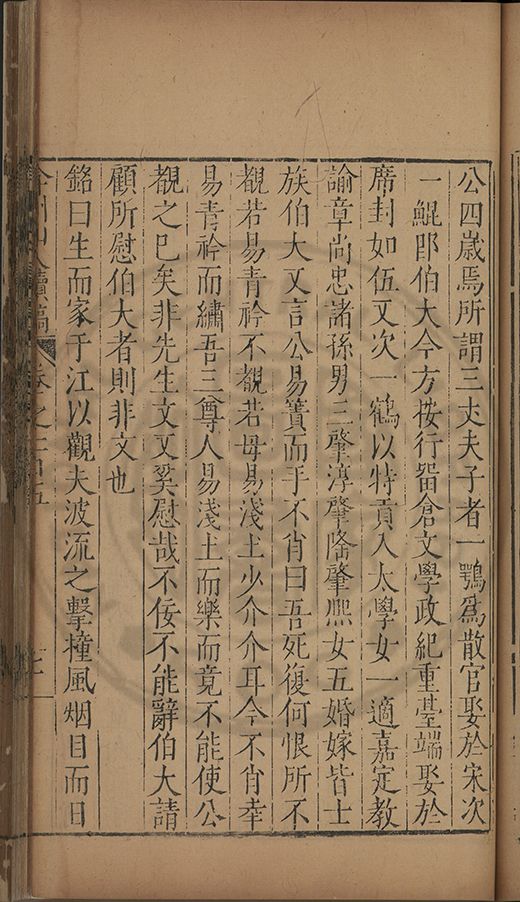 公四歲焉所謂三丈夫子者一鶚爲散官娶於宋次
一鯤即伯大今方按行畱倉文學政紀重臺端娶於
席封如伍又次一鶴以特貢入太學女一適嘉定教
諭章尚忠諸孫男三肇淳肇隆肇熙女五婚嫁皆士
族伯大又言公易簀而手不肖曰吾死復何恨所不
覩若易青衿不覩若母易淺土少介介耳今不肖幸
易青衿而繡吾三尊人易淺土而樂而竟不能使公
覩之已矣非先生文又奚慰哉不佞不能辭伯大請
顧所慰伯大者則非文也
銘曰生而家于江以觀夫波流之擊撞風烟目而日
弇州山人續稿 卷之一百五 七